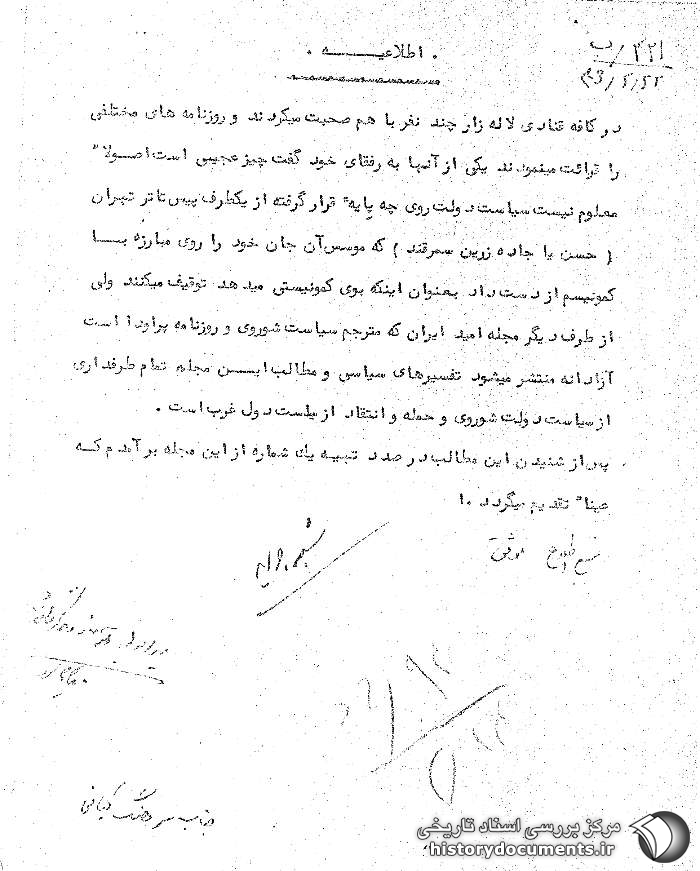 ۴۲۱/ب
. اطلاعیـــــــه .
در کافه قنادی لاله زار چند نفر با هم صحبت میکردند و روزنامه های مختلفی
را قرائت مینمودند یکی از آنها به رفقای خود گفت چیز عجیبی است اصولا"
معلوم نیست سیاست دولت روی چه پایه" قرار گرفته از یکطرف پیس تاتر تهران
( حسن یا جاده زرین سمرقند ) که موسس آن جان خود را روی مبارزه بــا
کمونیسم از دست داد بعنوان اینکه بوی کمونیستی میدهد توقیف میکنند ولی
از طرف دیگر مجله امید ایران که مترجم سیاست شوروی و روزنامه پراودا است
آزادانه منتشر میشود تفسیرهای سیاسی و مطالب ایــن مجله تمام طرفداری
از سیاست دولت شوروی و حمله و انتقاد از سیاست دول غرب است .
پس از شنیدن این مطالب در صدد تهیه یک شماره از این مجله برآمدم کــه
عینا" تقدیم میگردد .
منبع اطلاع موثق
جناب سرهنگ کیانی
مرکز بررسی اسناد تاریخی
historydocuments.ir